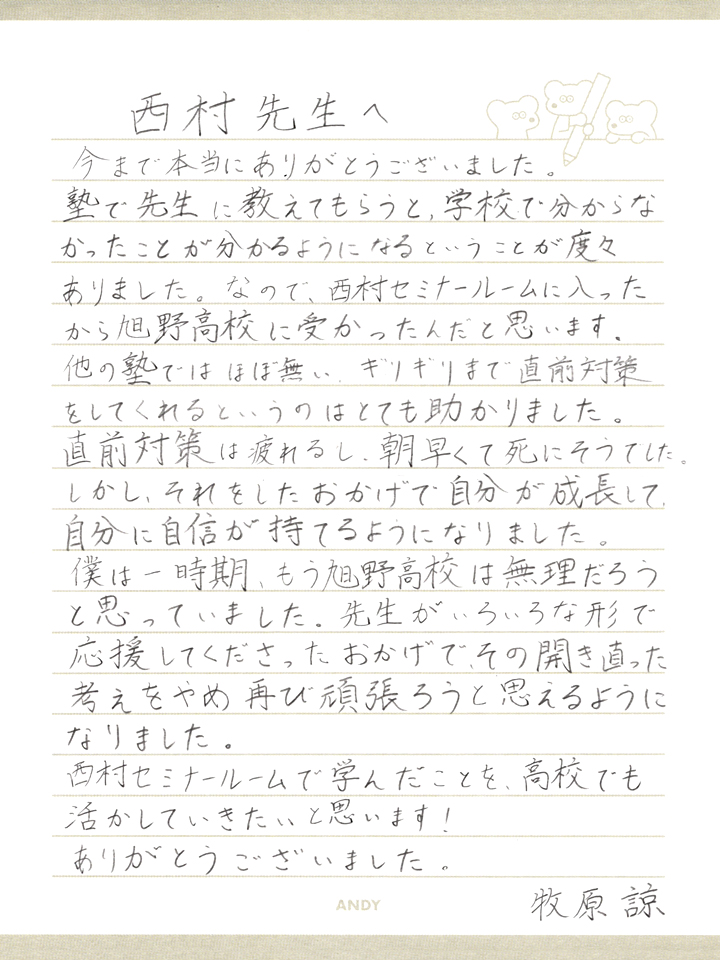 西村先生へ
今まで本当にありがとうございました。
塾で先生に教えてもらうと、学校で分からな
かったことが分かるようになるということが度々
ありました。なので、西村セミナールームに入った
から旭野高校に受かったんだと思います。
他の塾ではほぼ無い、ギリギリまで直前対策
をしてくれるというのはとても助かりました。
直前対策は疲れるし、朝早くて死にそうでした。
しかし、それをしたおかげで自分が成長して、
自分に自信が持てるようになりました。
僕は一時期、もう旭野高校は無理だろう
と思っていました。先生がいろいろな形で
応援してくださったおかげで、その開き直った
考えをやめ再び頑張ろうと思えるように
なりました。
西村セミナールームで学んだことを、高校でも
活かしていきたいと思います!
ありがとうございました。
ANDY
牧原諒